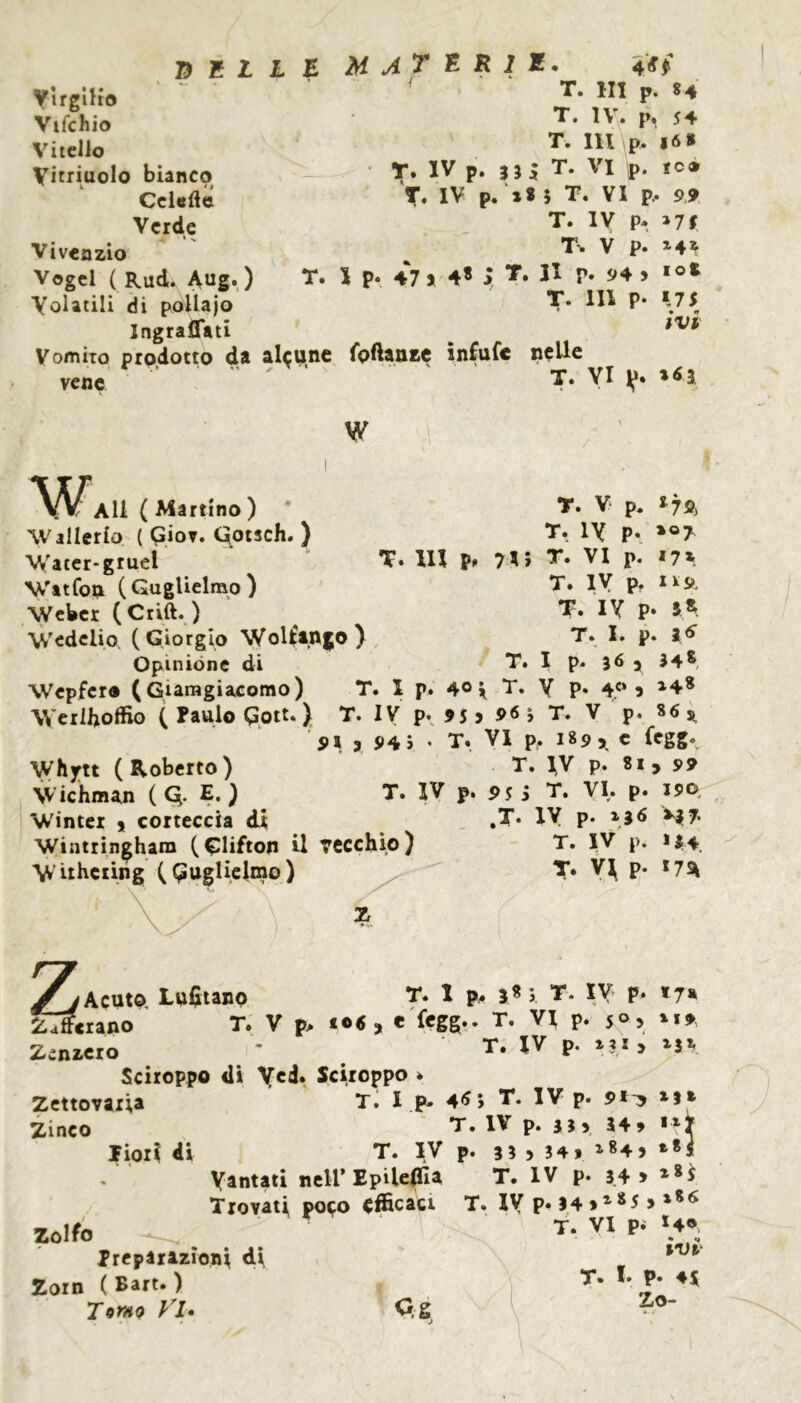 DELLE MATERIE. 465
Virgilio T. III p. 84
Viſchio T. IV. p. 54
Vitello T. III p. 168
Vitriuolo bianco T. IV p. 33; T. VI p. 100
Celeſte T. IV p. 28; T. VI p. 99
Verde T. IV p. 275
Vivenzio T. V p. 242
Vogel (Rud. Aug.) T. I p. 47, 48; T. II p. 94, 108
Volatili di pollajo T. III p. 175
Ingraſſati ivi
Vomito prodotto da alcune ſoſtanze infuſe nelle
vene T. VI p. 263
W
WAll (Martino) T. V p. 
Wallerio (Giov. Gotsch.) T. IV p. 207
Water-gruel T. III p. 71; T. VI p. 172
Watſon (Guglielmo) T. IV p. 119
Weber (Criſt.) T. IV p. 
Wedelio (Giorgio Wolfango) T. I. p. 36
Opinione di T. I p. 36, 348
Wepfero (Giamgiacomo) T. I p. 40; T. V p. 40, 248
Werlhoffio (Paulo Gott.) T. IV p. 95, 96; T. V p. 86,
91, 94; . T. VI p. 189, e ſegg.
Whytt (Roberto) T. IV p. 81, 99
Wichman (G. E.) T. IV p. 95; T. VI. p. 190
Winter, corteccia di T. IV p. 236 237.
Wintringham (Clifton il vecchio) T. IV p. 
Withering (Guglielmo) T. VI p. 
Z
ZAcuto Luſitano T. I p. 38; T. IV p. 172
Zafferano T. V p. 106, e ſegg.. T. VI p. 50, 
Zenzero T. IV p. 231, 232
Sciroppo di Ved. Sciroppo.
Zettovaria T. I p. 46; T. IV p. 91, 232
Zinco T. IV p. 33, 34, 
Fiori di T. IV p. 33, 34, 284, 285
Vantati nell' Epileſſia T. IV p. 34, 285
Trovati poco efficaci T. IV p. 34, 285, 286
Zolfo T. VI p. 140
Preparazioni di ivi
Zorn (Bart.) T. I. p. 45
Tomo VI. Gg Zo-